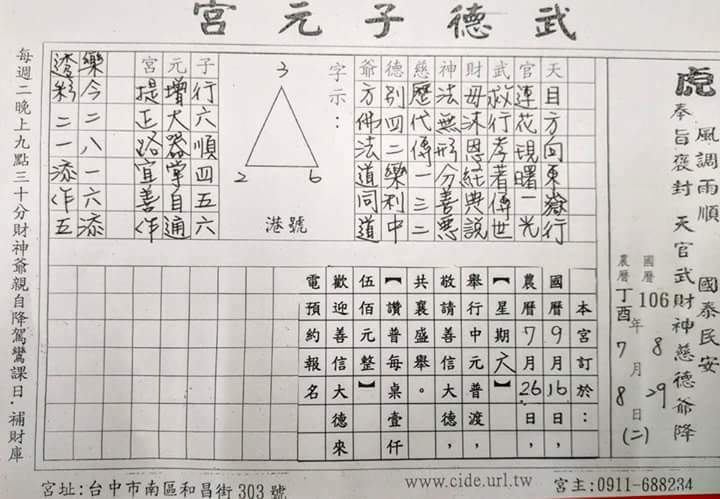 武德子元宮
虎
風調雨順
國泰民安
奉旨褒封 天官武財神慈德爺降
國曆 106 年 8 月 29 日
農曆 丁酉 年 7 月 8 日 (二)
天目方向東嶽行
官蓮花現曙一光
武救行孝著傳世
財毋沐恩經典說
神法無形分善惡
慈歷代傳一三二
德別四二樂利中
爺方佛法道同道
字示：
3
2
6
港號
子行六順四五六
元增大器掌自通
宮提正路宜善作
樂今二八一六添
透彩二一添作五
本宮訂於：
國曆9月16日，
農曆7月26日，
【星期六】
舉行中元普渡，
敬請善信大德，
共襄盛舉。
【讚普每桌壹仟
伍佰元整】
歡迎善信大德來
電預約報名
每週二晚上九點三十分財神爺親自降駕鸞課日．補財庫
宮址:台中市南區和昌街303號
www.cide.url.tw
宮主:0911-688234